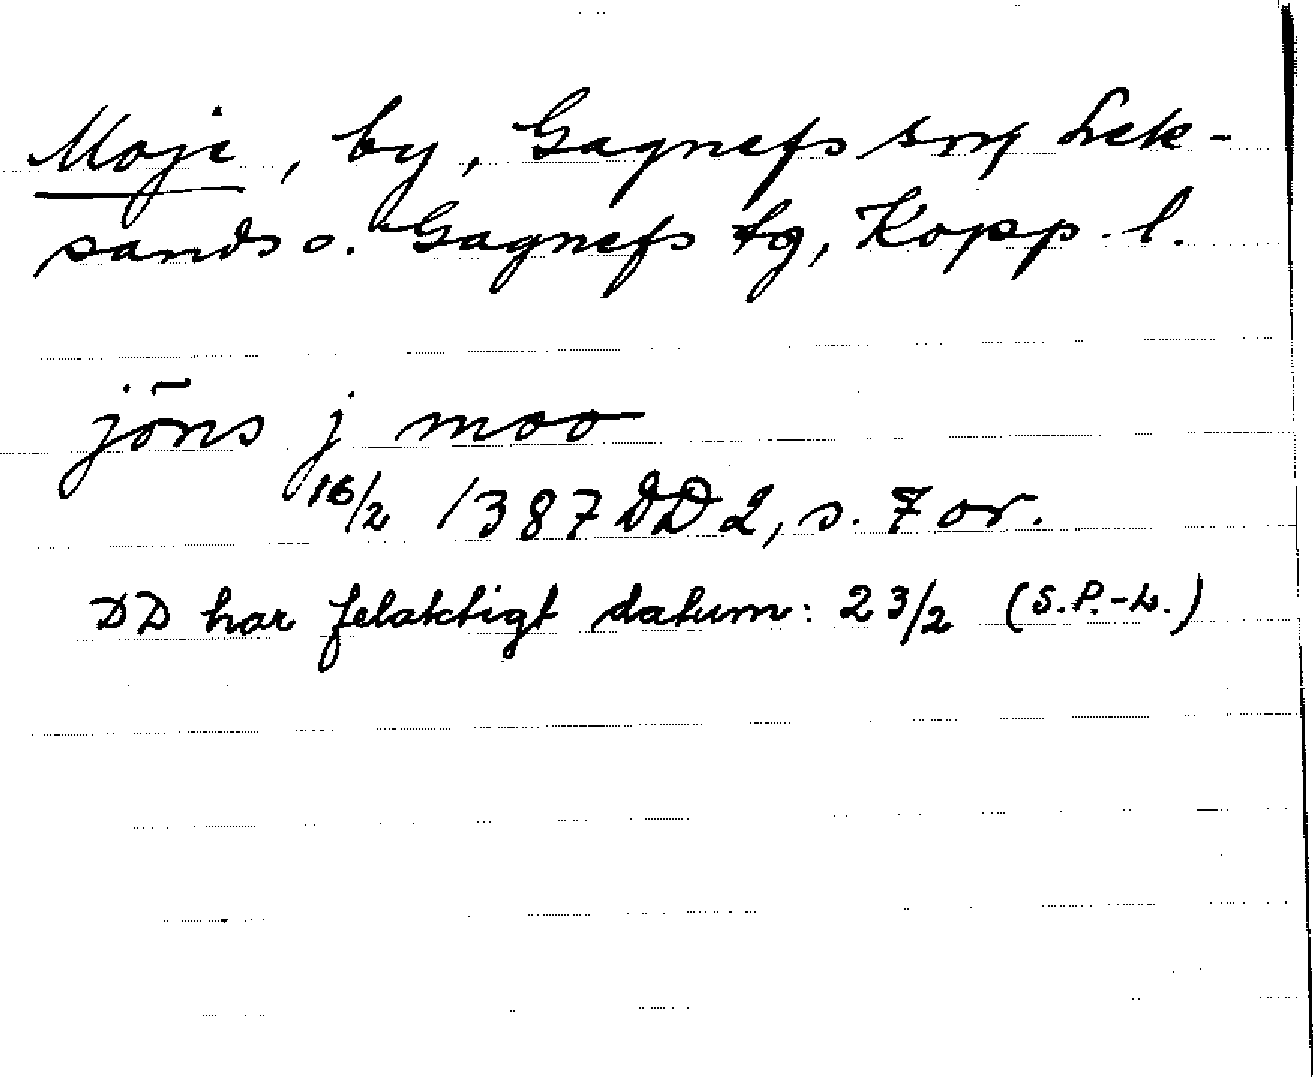 Moje, by, Gagnefs sn, Lek-
sands o. Gagnefs tg, Kopp. l.
jōns j moo
16/2 1387 DD 2, s. 7 or.
DD har felaktigt datum: 23/2 (S.P.-L.)